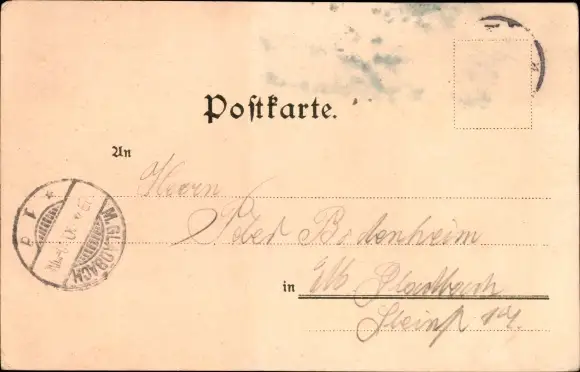 Postkarte.
An
Herrn
Peter Bodenheim
in M Gladbach
Steinst 14.
M. GLADBACH